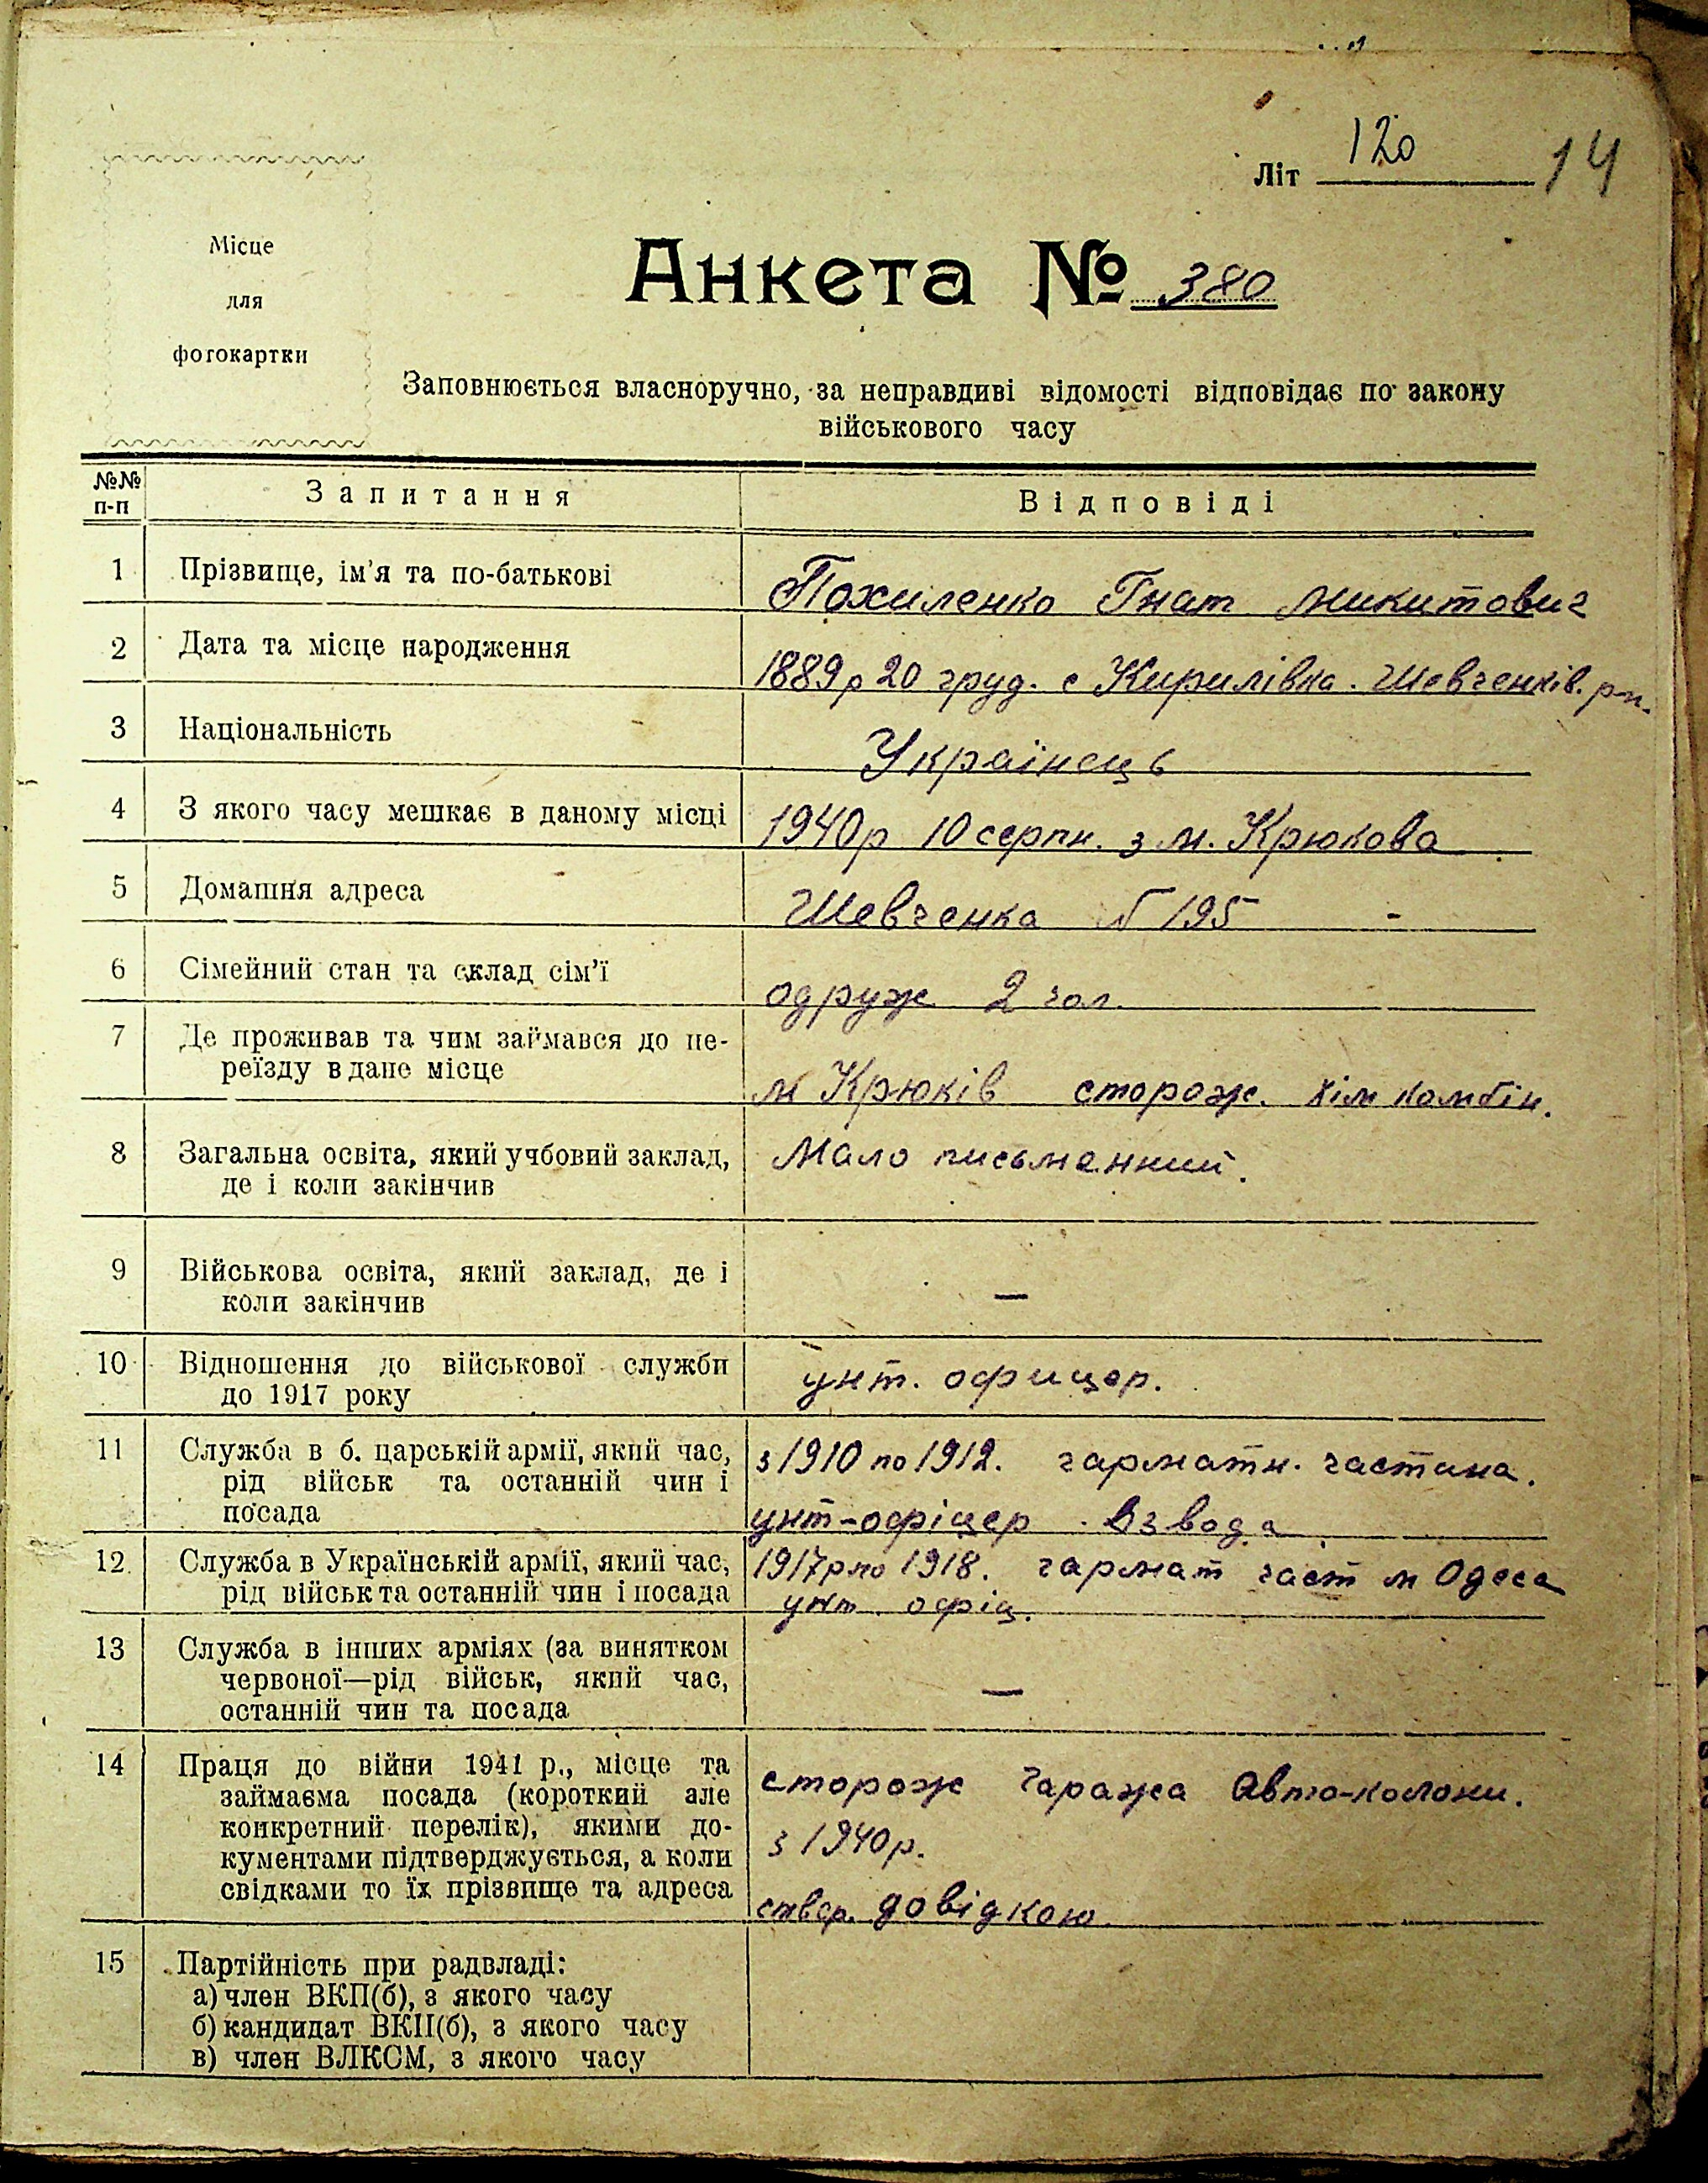 Літ 120 14
Місце
для
фотокартки
Анкета № 380
Заповнюється власноручно, за неправдиві відомості відповідає по закону
військового часу
№№ п-п Запитання Відповіді
1 Прізвище, ім'я та по-батькові Похиленко Гнат Микитович
2 Дата та місце народження 1889р 20 груд. с Кирилівка. Шевченків. р-н.
3 Національність Українець
4 З якого часу мешкає в даному місці 1940р 10 серпн. з м. Крюкова
5 Домашня адреса Шевченка № 195 -
6 Сімейний стан та склад сім'ї одруж 2 чол.
7 Де проживав та чим займався до пе-
реїзду в дане місце м Крюків сторож. хім комбін.
8 Загальна освіта, який учбовий заклад, Мало письменний.
де і коли закінчив
9 Військова освіта, який заклад, де і
коли закінчив —
10 Відношення до військової служби унт. офицер.
до 1917 року
11 Служба в б. царській армії, який час, з 1910 по 1912. гарматн. частина.
рід військ та останній чин і
посада унт-офіцер взвода
12 Служба в Українській армії, який час, 1917р по 1918. гармат част м Одеса
рід військ та останній чин і посада унт. офіц.
13 Служба в інших арміях (за винятком
червоної—рід військ, який час, —
останній чин та посада
14 Праця до війни 1941 р., місце та сторож гаража Авто-колони.
займаєма посада (короткий але
конкретний перелік), якими до- з 1940р.
кументами підтверджується, а коли
свідками то їх прізвище та адреса ствер. довідкою
15 Партійність при радвладі:
а) член ВКП(б), з якого часу
б) кандидат ВКП(б), з якого часу
в) член ВЛКСМ, з якого часу